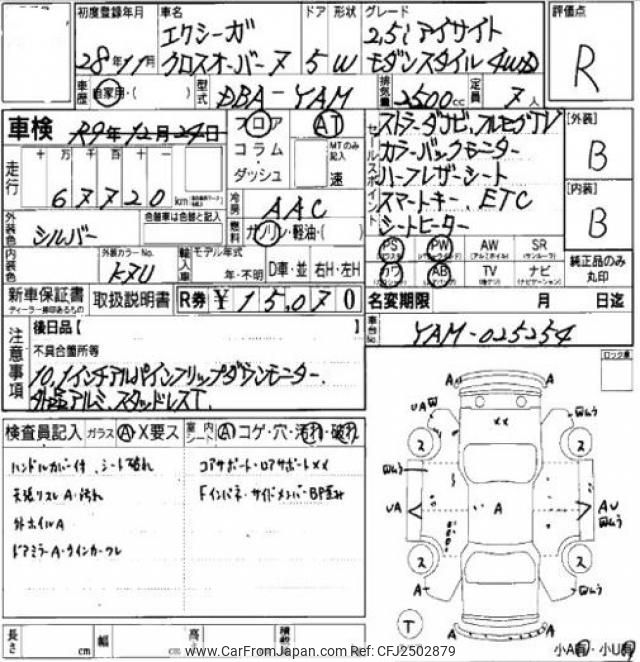 初度登録年月 車名 ドア 形状 グレード 評価点
28年11月 エクシーガ クロスオーバー7 5 W 2,5i アイサイト モダンスタイル 4WD R
車歴 自家用・( ) 型式 DBA-YAM 排気量 2500cc 定員 7人
車検 R9年12月24日 フロア コラム・ダッシュ AT MTのみ記入 速
セールスポイント ストラーダナビ、フルセグTV
カラーバックモニター
ハーフレザーシート
スマートキー、ETC
シートヒーター
[外装] B
[内装] B
純正品のみ丸印
走行 十 万 千 百 十 一
67720 km
冷房 AAC
燃料 ガソリン・軽油・( )
外装色 シルバー 色替車は色替と記入
内装色 外装カラーNo. K7U
輸入車 モデル年式 年・不明 D車・並 右H・左H
PS PW AW SR
(アルミホイル) (サンルーフ)
カワ AB TV ナビ
(ナビゲーション)
新車保証書 ディーラー捺印あるもの 取扱説明書 R券 ¥15,070
名変期限 月 日迄
車台No. YAM-025254
注意事項 後日品【
不具合箇所等
10,1インチアルパインフリップダウンモニター、
外品アルミ、スタッドレスT、
ロック座
検査員記入 ガラス A・X要ス 室内 シート A コゲ・穴・汚れ・破れ
ハンドルカバー付、シート破れ
天張リスレA・汚れ
外ホイルA
ドアミラーA・ウインカーワレ
コアサポート・ロアサポートXX
Fインパネ・サイドメンバーBP歪み
A A
UAW XX
ス ス
UA A AU
ス ス
A A
T
A A
長さ cm 幅 cm 高 積載
小A有・小U有
www.CarFromJapan.com Ref: CFJ2502879